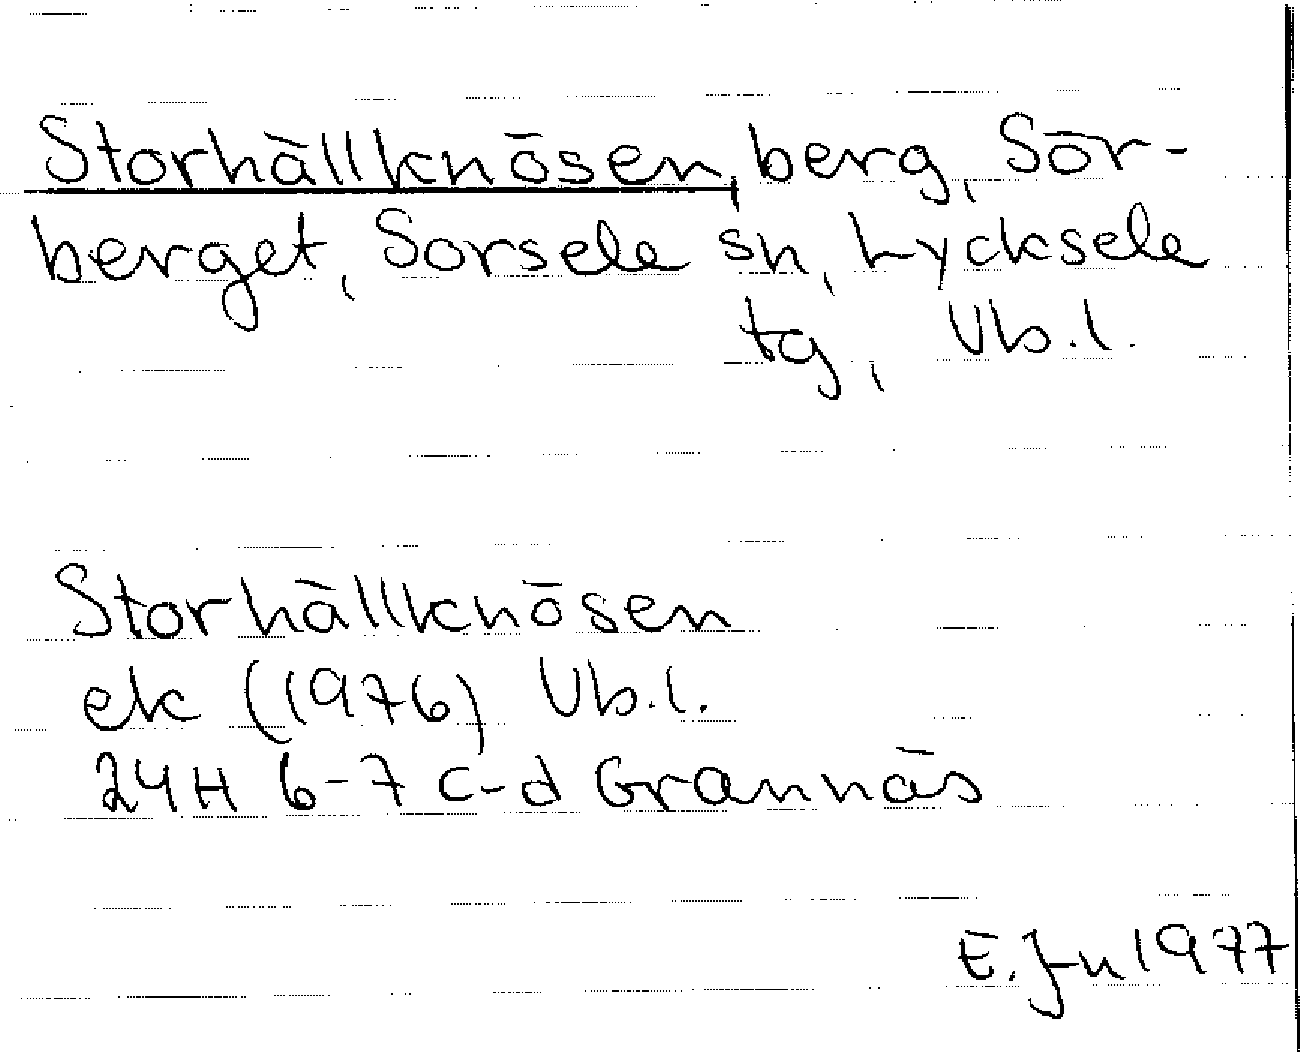 Storhällknösen, berg, Sör-
berget, Sorsele sn, Lycksele
tg, Vb.l.
Storhällknösen
ek (1976) Vb.l.
24H 6-7 c-d Grannäs
E. Jn 1977